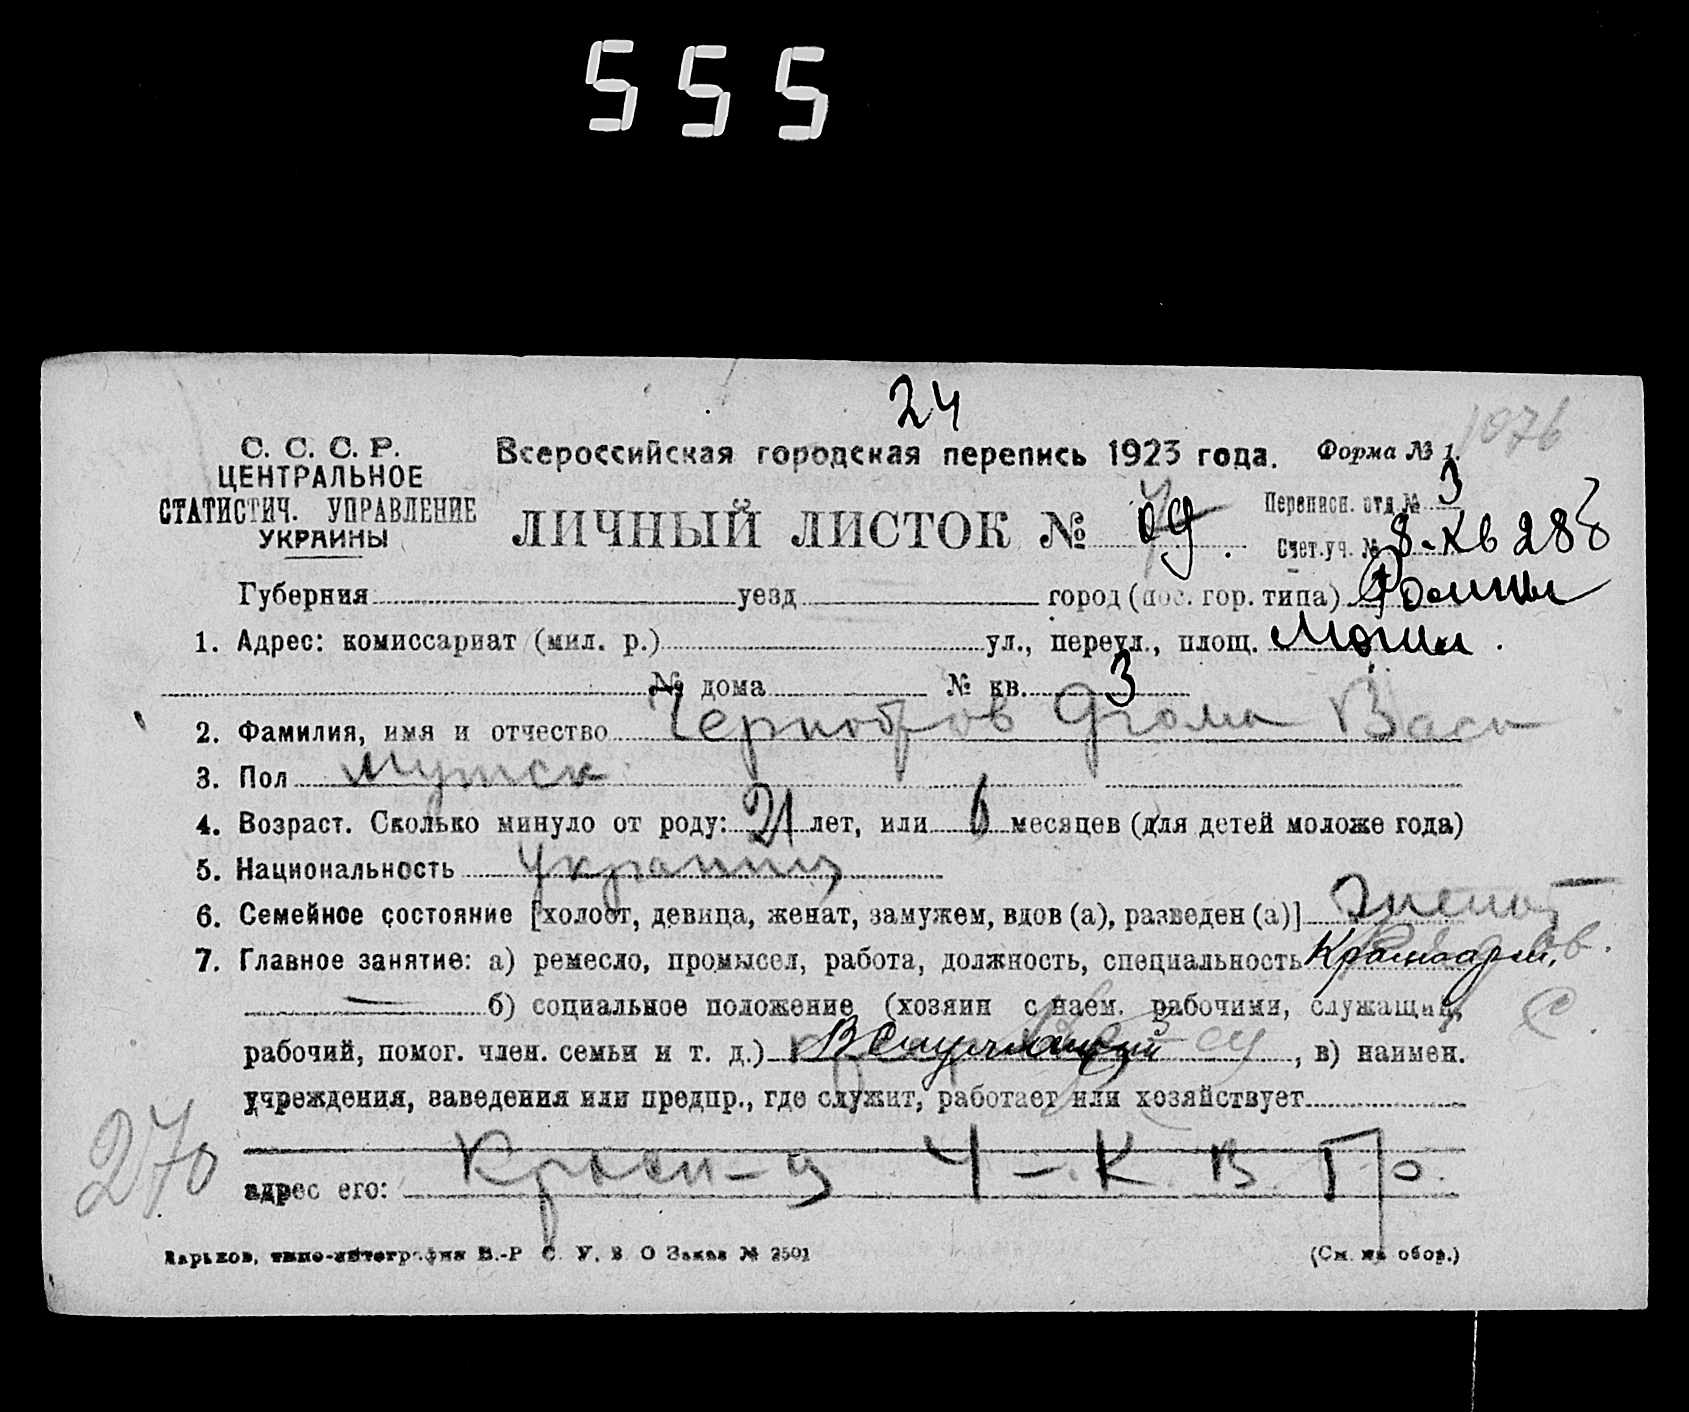 555
24
С. С. С. Р.
ЦЕНТРАЛЬНОЕ
СТАТИСТИЧ. УПРАВЛЕНИЕ
УКРАИНЫ
Всероссийская городская перепись 1923 года.
Форма № 1.
1076
ЛИЧНЫЙ ЛИСТОК №
Переписн. отд. № 3
Счет.уч. № 8. Кв 288
Губерния уезд город (пос. гор. типа) Ромны
1. Адрес: комиссариат (мил. р.) ул., переул., площ.
№ дома № кв. 3
2. Фамилия, имя и отчество Чернобров Фома Вас
3. Пол Мужск
4. Возраст. Сколько минуло от роду: 21 лет, или 6 месяцев (для детей моложе года)
5. Национальность Украинц
6. Семейное состояние [холост, девица, женат, замужем, вдов (а), разведен (а)]
7. Главное занятие: а) ремесло, промысел, работа, должность, специальность Красноарм.
б) социальное положение (хозяин с наем. рабочими, служащий,
рабочий, помог. член. семьи и т. д.) , в) наимен.
учреждения, заведения или предпр., где служит, работает или хозяйствует
адрес его: 4-К. В. Гр.
270
Харьков, типо-литография В.-Р С. У. В. О Заказ № 2501
(См. на обор.)